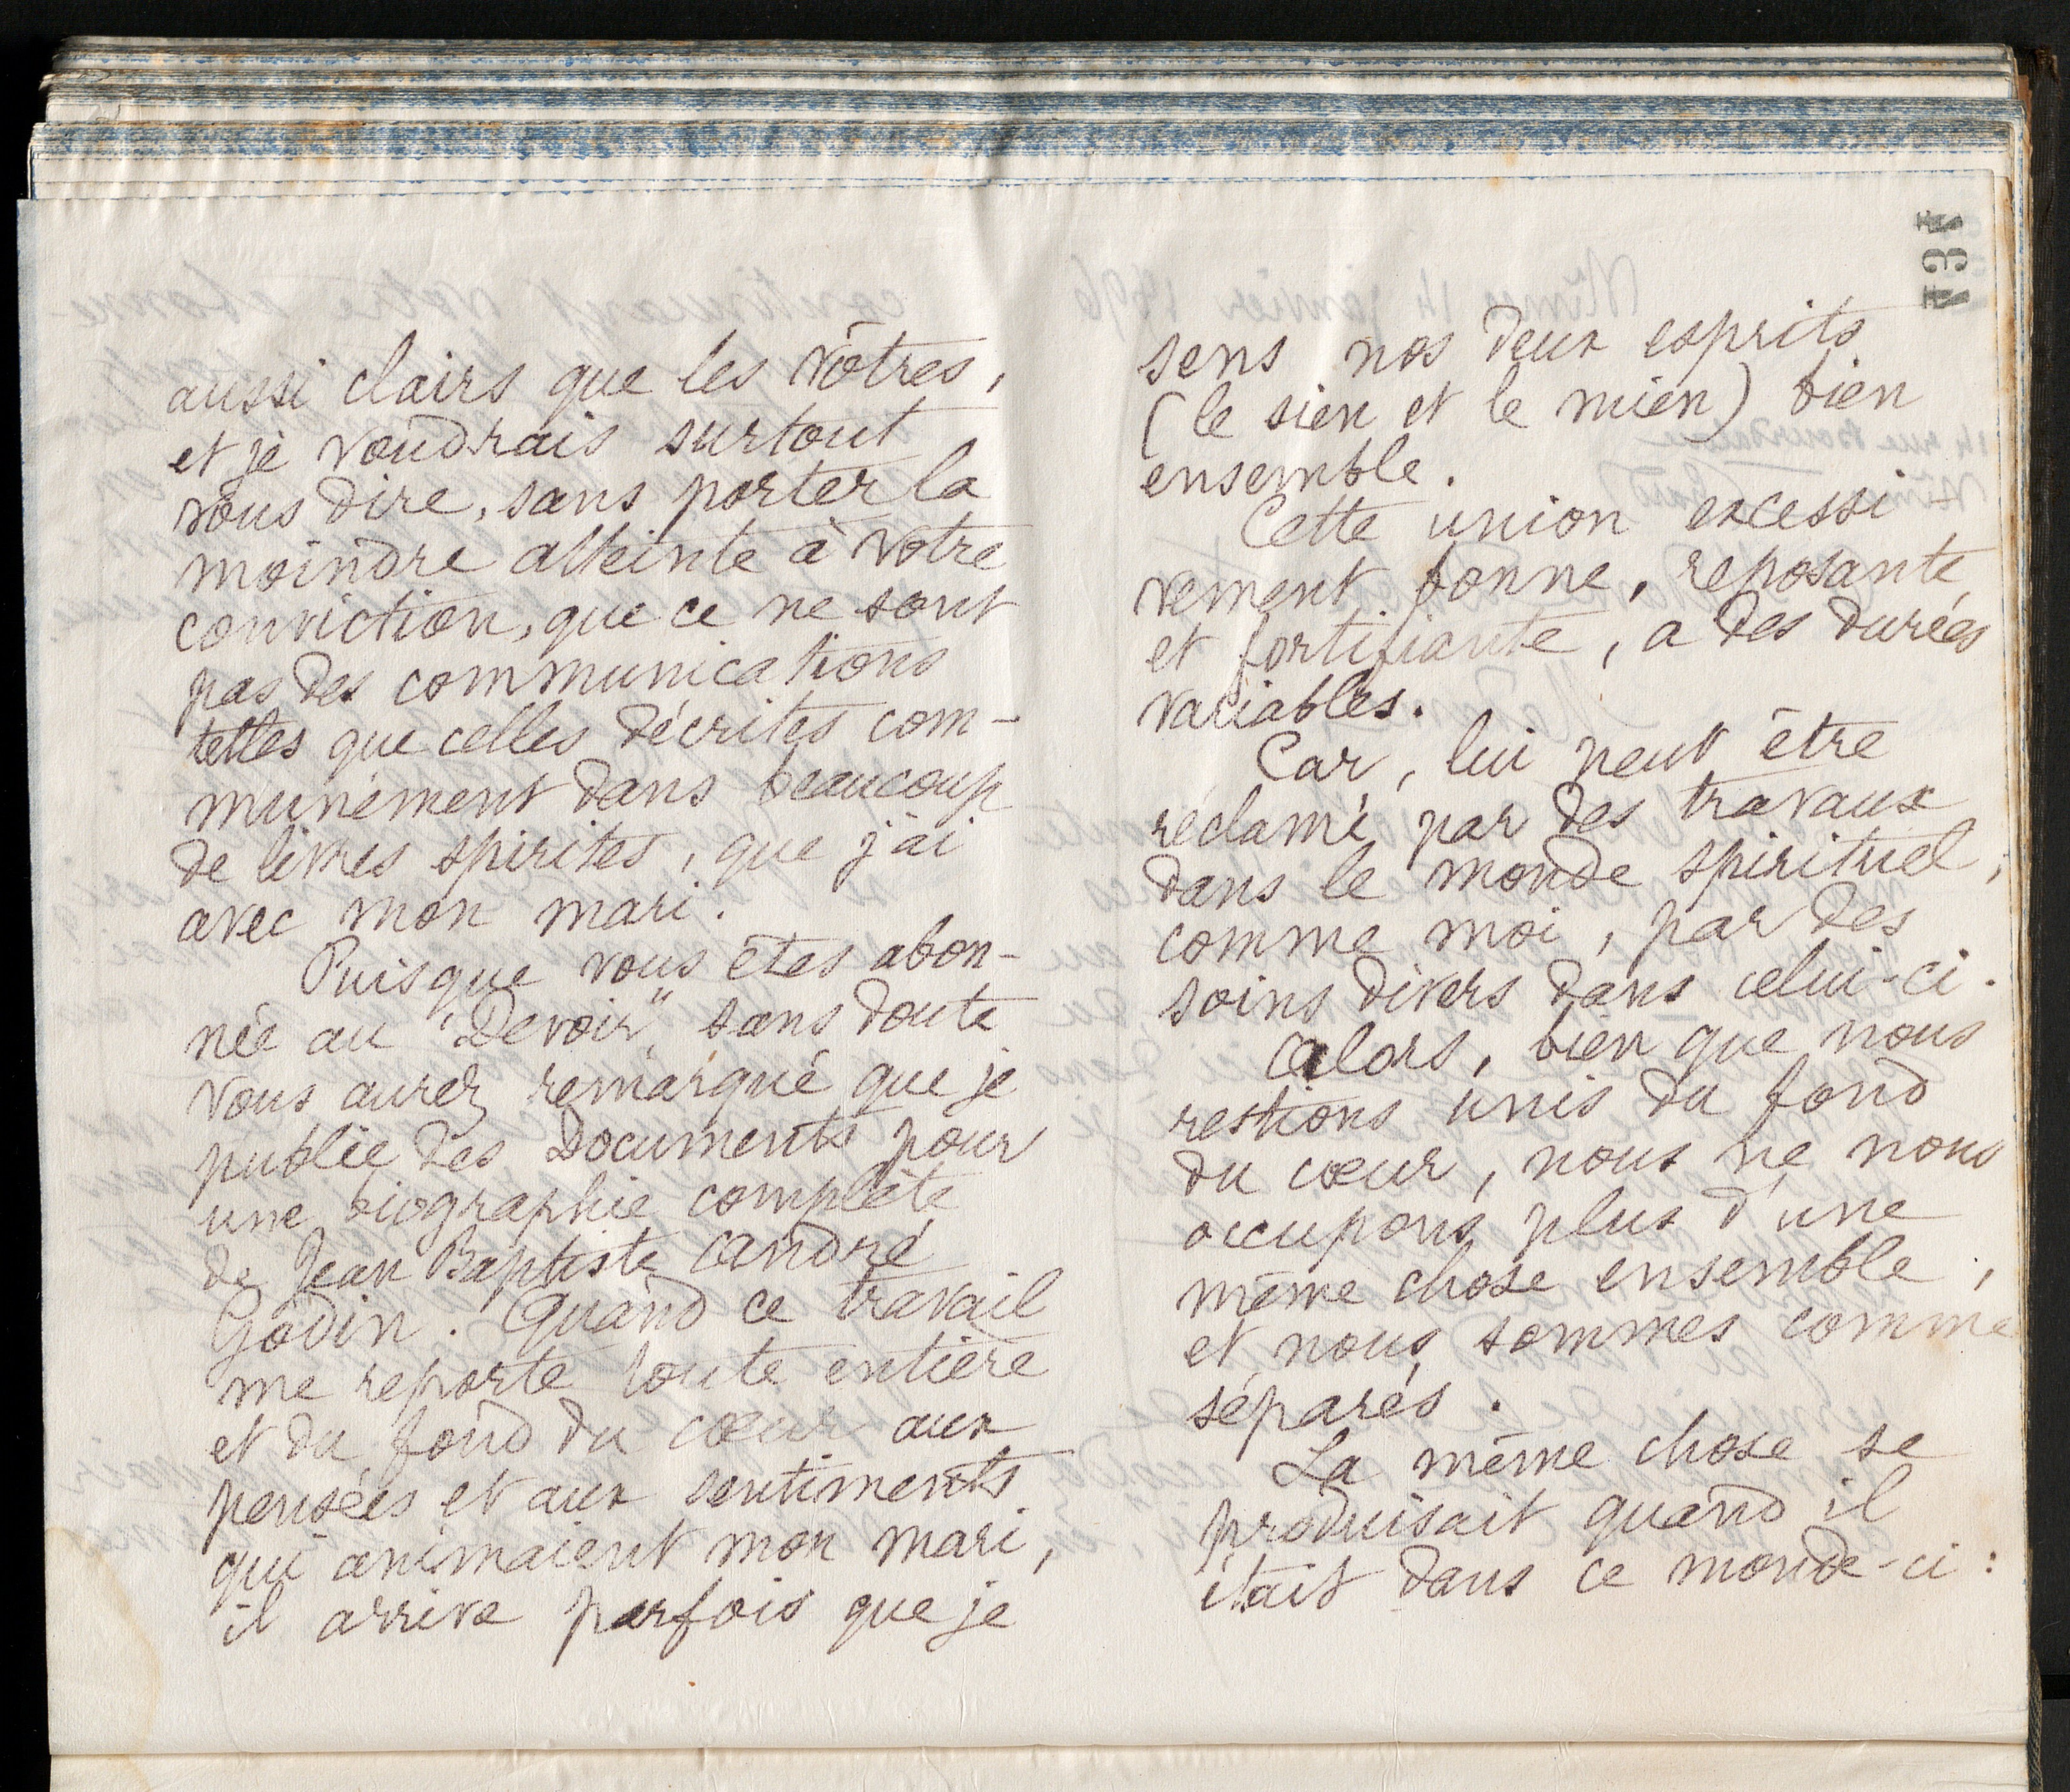 aussi clairs que les vôtres,
et je voudrais surtout
vous dire, sans porter la
moindre atteinte à votre
conviction, que ce ne sont
pas des communications
telles que celles décrites com-
munément dans beaucoup
de livres spirites, que j'ai
avec mon mari.
Puisque vous êtes abon-
née au "Devoir", sans doute
vous aurez remarqué que je
publie des Documents pour
une biographie complète
de Jean Baptiste André
Godin. Quand ce travail
me reporte toute entière
et du fond du cœur aux
pensées et aux sentiments
qui animaient mon mari,
il arrive parfois que je
sens nos deux esprits
(le sien et le mien) bien
ensemble.
Cette union excessi
vement bonne, reposante
et fortifiante, a des durées
variables.
Car, lui peut être
réclamé par des travaux
dans le monde spirituel,
comme moi, par des
soins divers dans celui-ci.
Alors, bien que nous
restions unis du fond
du cœur, nous ne nous
occupons plus d'une
même chose ensemble,
et nous sommes comme
séparés.
La même chose se
produisait quand il
était dans ce monde-ci: